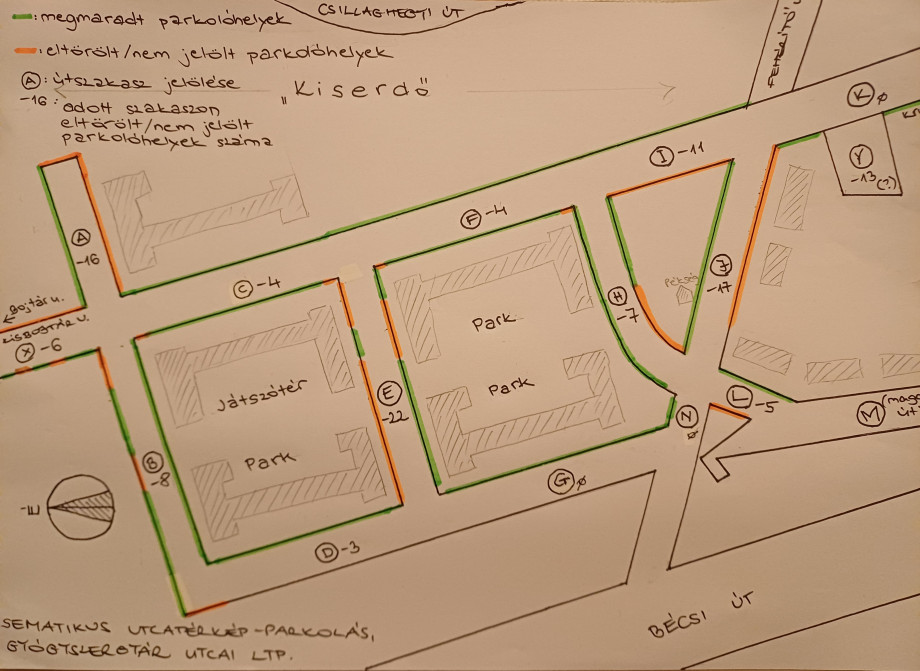 CSILLAGHEGYI ÚT
: megmaradt parkolóhelyek
: eltörölt/nem jelölt parkolóhelyek
A : útszakasz jelölése
-16 : adott szakaszon
eltörölt/nem jelölt
parkolóhelyek száma
"Kiserdő
FEHÉRÍTŐ U
K ø
I -11
Y
-13(?)
F -4
A
-16
C -4
J
-17
Pékség
H
-7
Bojtár u.
X -6
Park
Játszótér
Park
E
-22
L -5
M
N
ø
B
-8
Park
G ø
É
D -3
BÉCSI ÚT
SEMATIKUS UTCATÉRKÉP-PARKOLÁS,
GYÓGYSZERGYÁR UTCAI LTP.